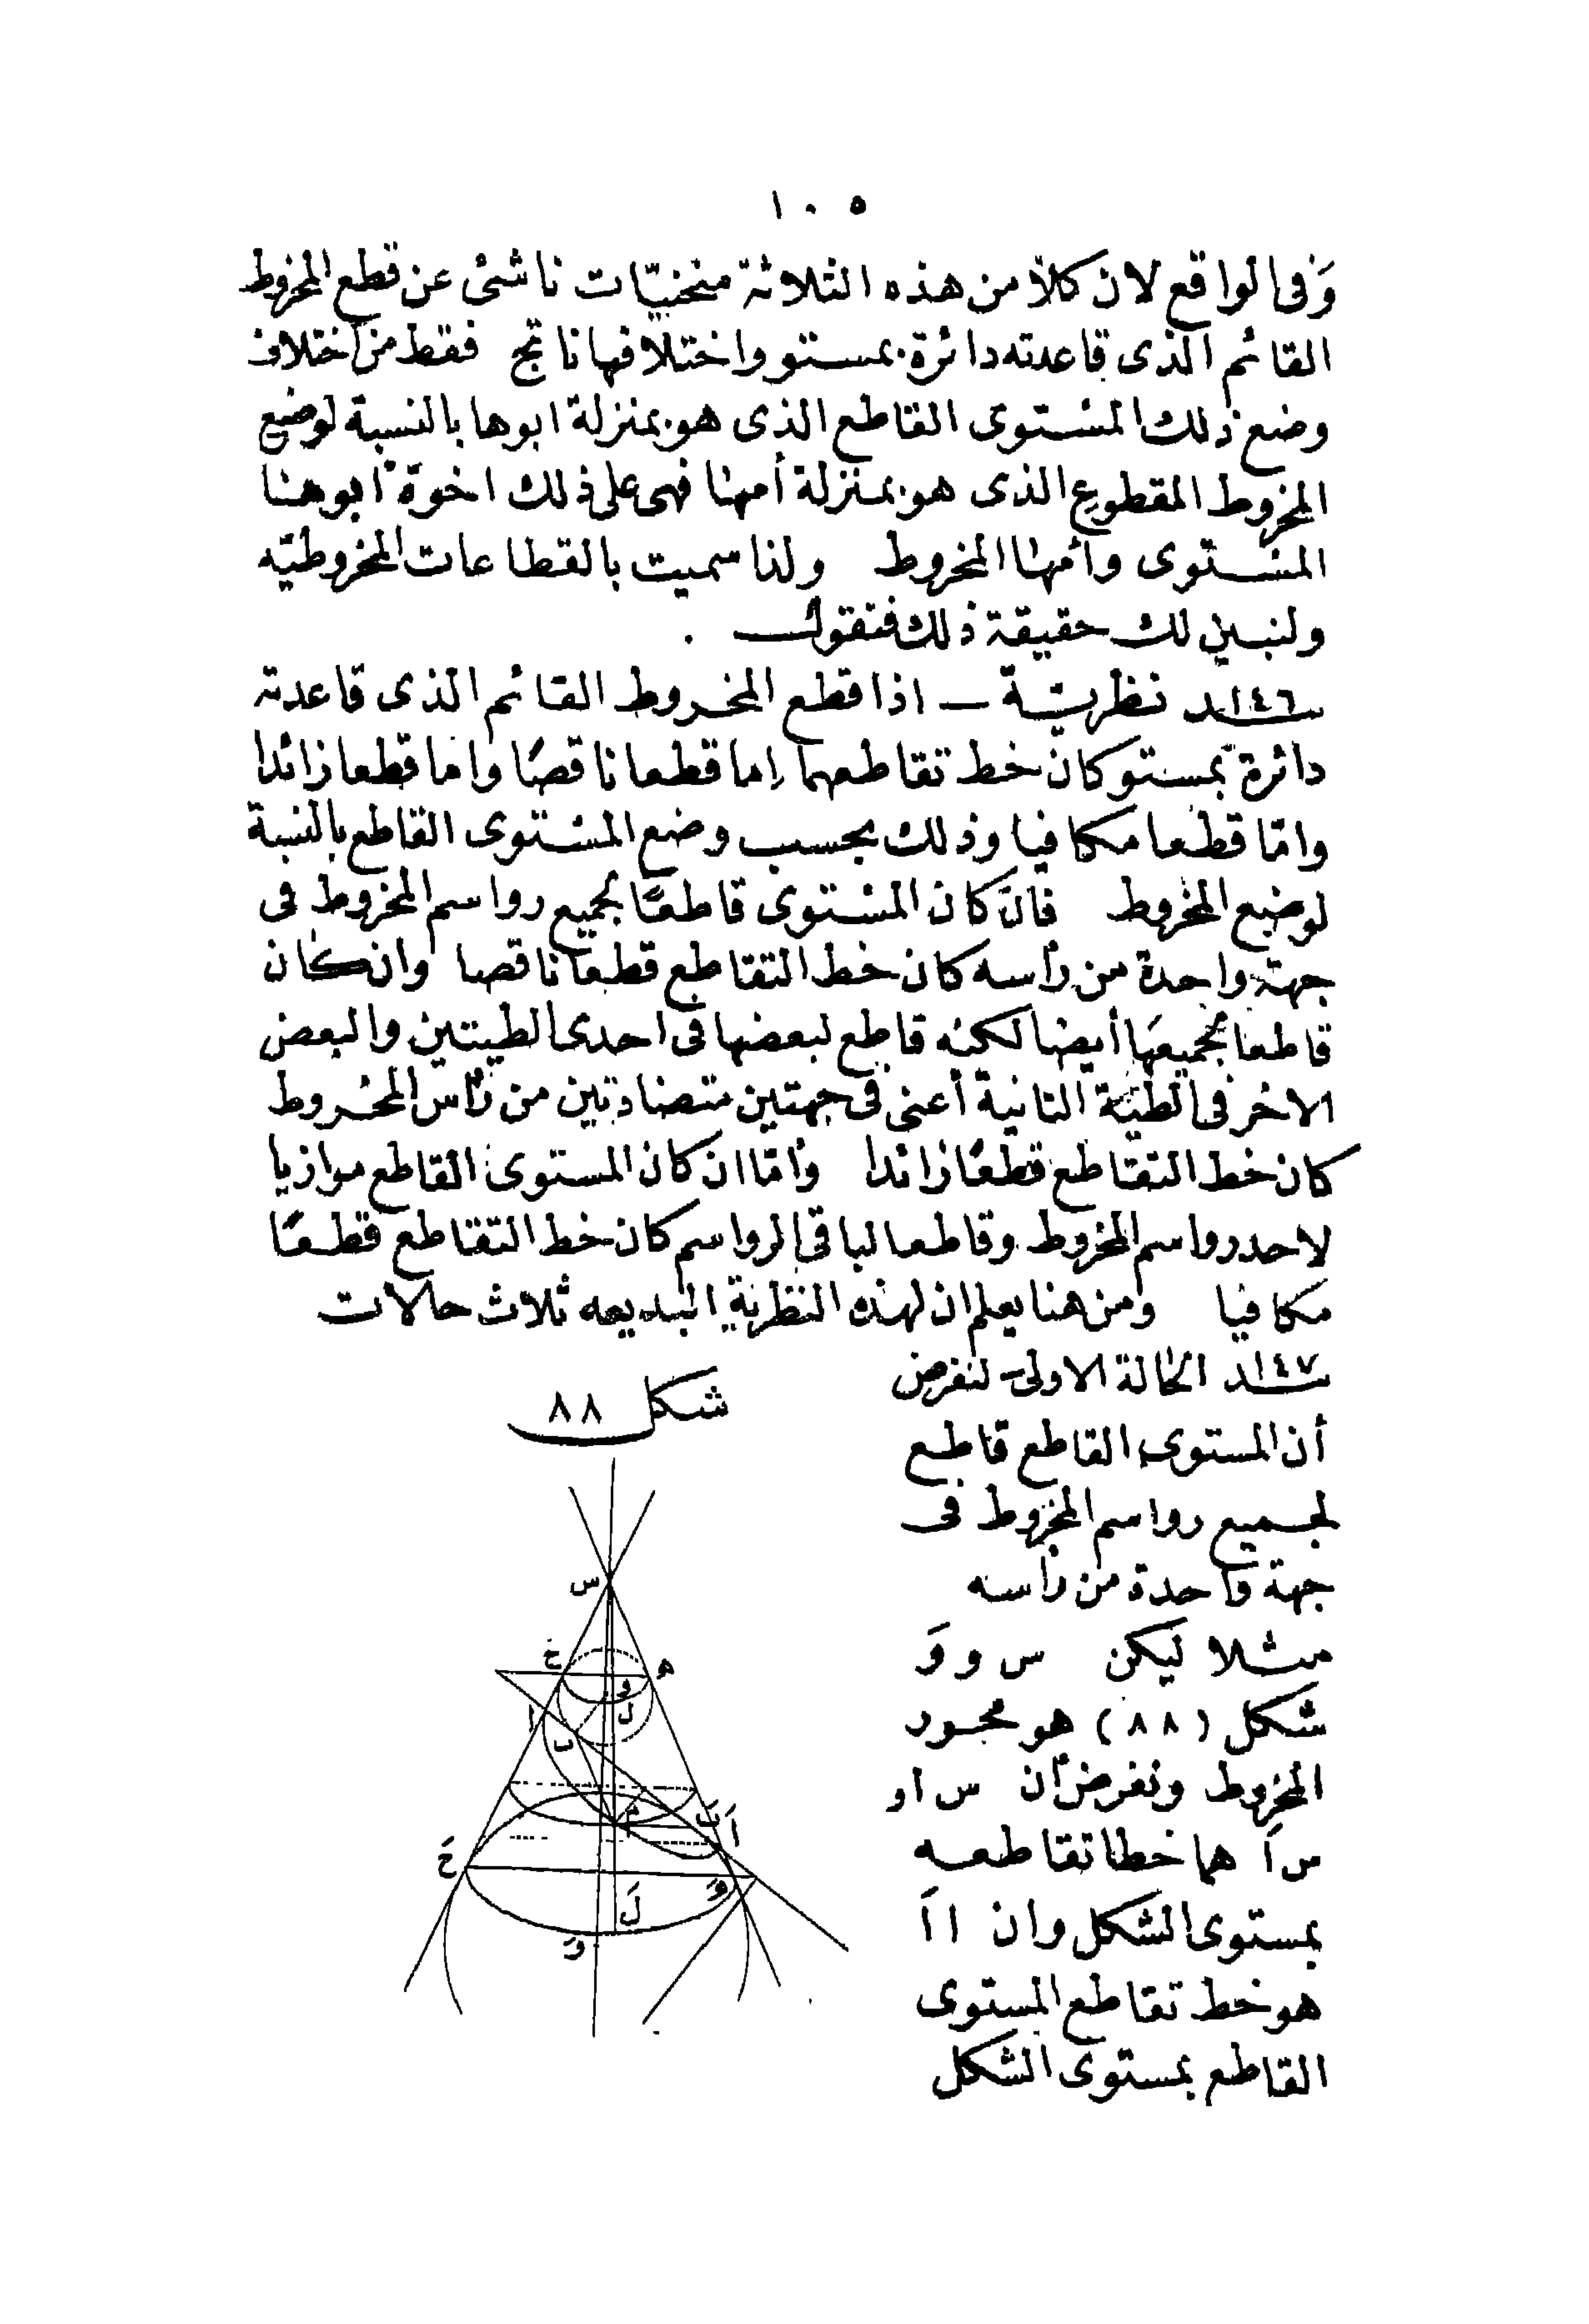 ١٠٥
وفى الواقع لان كلا من هذه الثلاثة منحنيّات ناشئ عن قطع المخروط
القائم الذى قاعدته دائرة بمستو واختلافها ناتج فقط من اختلاف
وضع ذلك المستوى القاطع الذى هو بمنزلة ابوها بالنسبة لوضع
المخروط المقطوع الذى هو بمنزلة أمها فهى على ذلك اخوة ابوها
المستوى وأمها المخروط ولذا سميت بالقطاعات المخروطيّه
ولنبين لك حقيقة ذلك فنقول .
١٤٦ـد نظريّة ــ اذا قطع المخروط القائم الذى قاعدته
دائرة بمستو كان خط تقاطعهما إما قطعا ناقصًا واما قطعا زائدا
وامّا قطعا مكافيا وذلك بحسب وضع المستوى القاطع بالنسبة
لوضع المخروط فان كان المستوى قاطعًا لجميع رواسم المخروط فى
جهة واحدة من رأسه كان خط التقاطع قطعا ناقصا وان كان
قاطعا لجميعها أيضا لكنه قاطع لبعضها فى احدى الطيتين والبعض
الاخر فى الطيّة الثانية أعنى فى جهتين متضادتين من رأس المخروط
كان خط التقاطع قطعًا زائدا وأمّا ان كان المستوى القاطع موازيا
لاحد رواسم المخروط وقاطعا لباقى الرواسم كان خط التقاطع قطعًا
مكافيا ومن هنا يعلم ان لهذه النظرية البديعه ثلاث حالات
١٤٧ـد الحالة الاولى ــ لنفرض
أن المستوى القاطع قاطع
لجميع رواسم المخروط فى
جهة واحدة من رأسه
مثلا ليكن س و وَ
شكل (٨٨) هو محور
المخروط ونفرض أن س ا و
س اَ هما خطا تقاطعه
بمستوى الشكل وان ا اَ
هو خط تقاطع المستوى
القاطع بمستوى الشكل
شكل ٨٨
س
ح
ه
و
ل
ا
ب
م
بَ
اَ
حَ
لَ
وَ